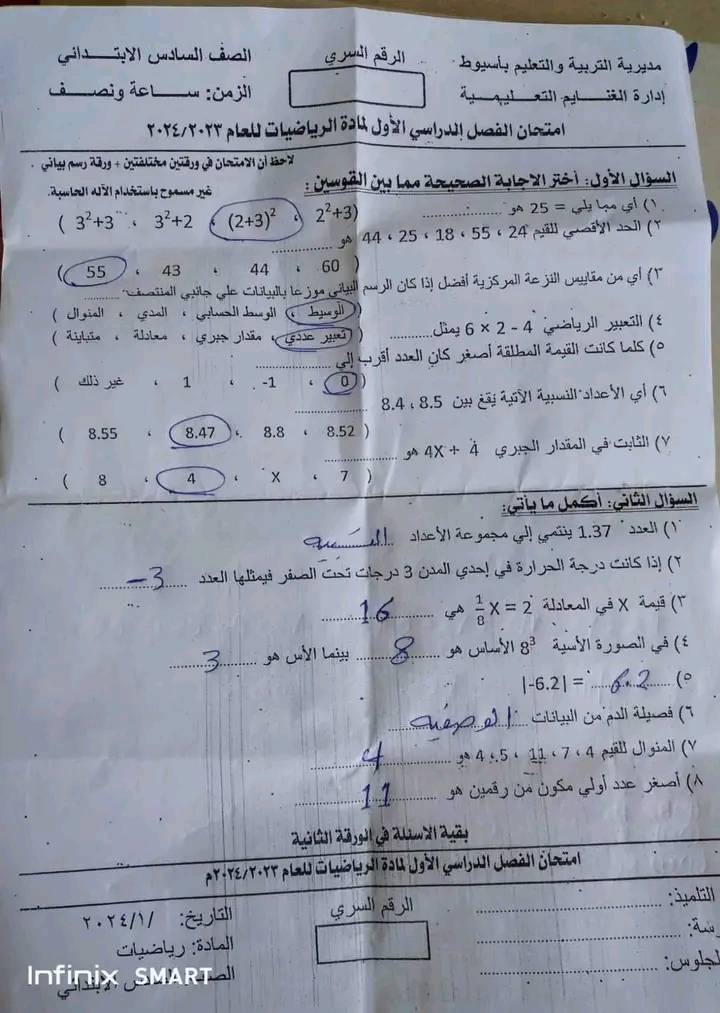 مديرية التربية والتعليم بأسيوط الرقم السري الصف السادس الابتدائي
إدارة الغنايم التعليمية الزمن: ساعة ونصف
امتحان الفصل الدراسي الأول لمادة الرياضيات للعام ٢٠٢٤/٢٠٢٣
لاحظ أن الامتحان في ورقتين مختلفتين + ورقة رسم بياني .
السؤال الأول: أختر الاجابة الصحيحة مما بين القوسين : غير مسموح باستخدام الآله الحاسبة.
١) أي مما يلي = 25 هو ............ (2²+3 ، (2+3)² ، 3²+2 ، 3²+3 )
٢) الحد الأقصي للقيم 24 ، 55 ، 18 ، 25 ، 44 هو ............
( 60 ، 44 ، 43 ، 55 )
٣) أي من مقاييس النزعة المركزية أفضل إذا كان الرسم البياني موزعا بالبيانات علي جانبي المنتصف ......
( الوسيط ، الوسط الحسابي ، المدي ، المنوال )
٤) التعبير الرياضي 6 × 2 - 4 يمثل............ ( تعبير عددي ، مقدار جبري ، معادلة ، متباينة )
٥) كلما كانت القيمة المطلقة أصغر كان العدد أقرب إلي ............
( 0 ، -1 ، 1 ، غير ذلك )
٦) أي الأعداد النسبية الآتية يقع بين 8.5 ، 8.4 ............
( 8.52 ، 8.8 ، 8.47 ، 8.55 )
٧) الثابت في المقدار الجبري 4X + 4 هو ............
( 7 ، X ، 4 ، 8 )
السؤال الثاني: أكمل ما يأتي:
١) العدد 1.37 ينتمي إلي مجموعة الأعداد النسبيه
٢) إذا كانت درجة الحرارة في إحدي المدن 3 درجات تحت الصفر فيمثلها العدد -3
٣) قيمة X في المعادلة 1/8 X = 2 هي 16
٤) في الصورة الأسية 8³ الأساس هو 8 بينما الأس هو 3
٥) |-6.2| = 6.2
٦) فصيلة الدم من البيانات الوصفيه
٧) المنوال للقيم 4 ، 7 ، 11 ، 5 ، 4 هو 4
٨) أصغر عدد أولي مكون من رقمين هو 11
بقية الاسئلة في الورقة الثانية
امتحان الفصل الدراسي الأول لمادة الرياضيات للعام ٢٠٢٤/٢٠٢٣م
التلميذ: ............ الرقم السري التاريخ: /١/ ٢٠٢٤
المادة: رياضيات
الابتدائي
Infinix SMART